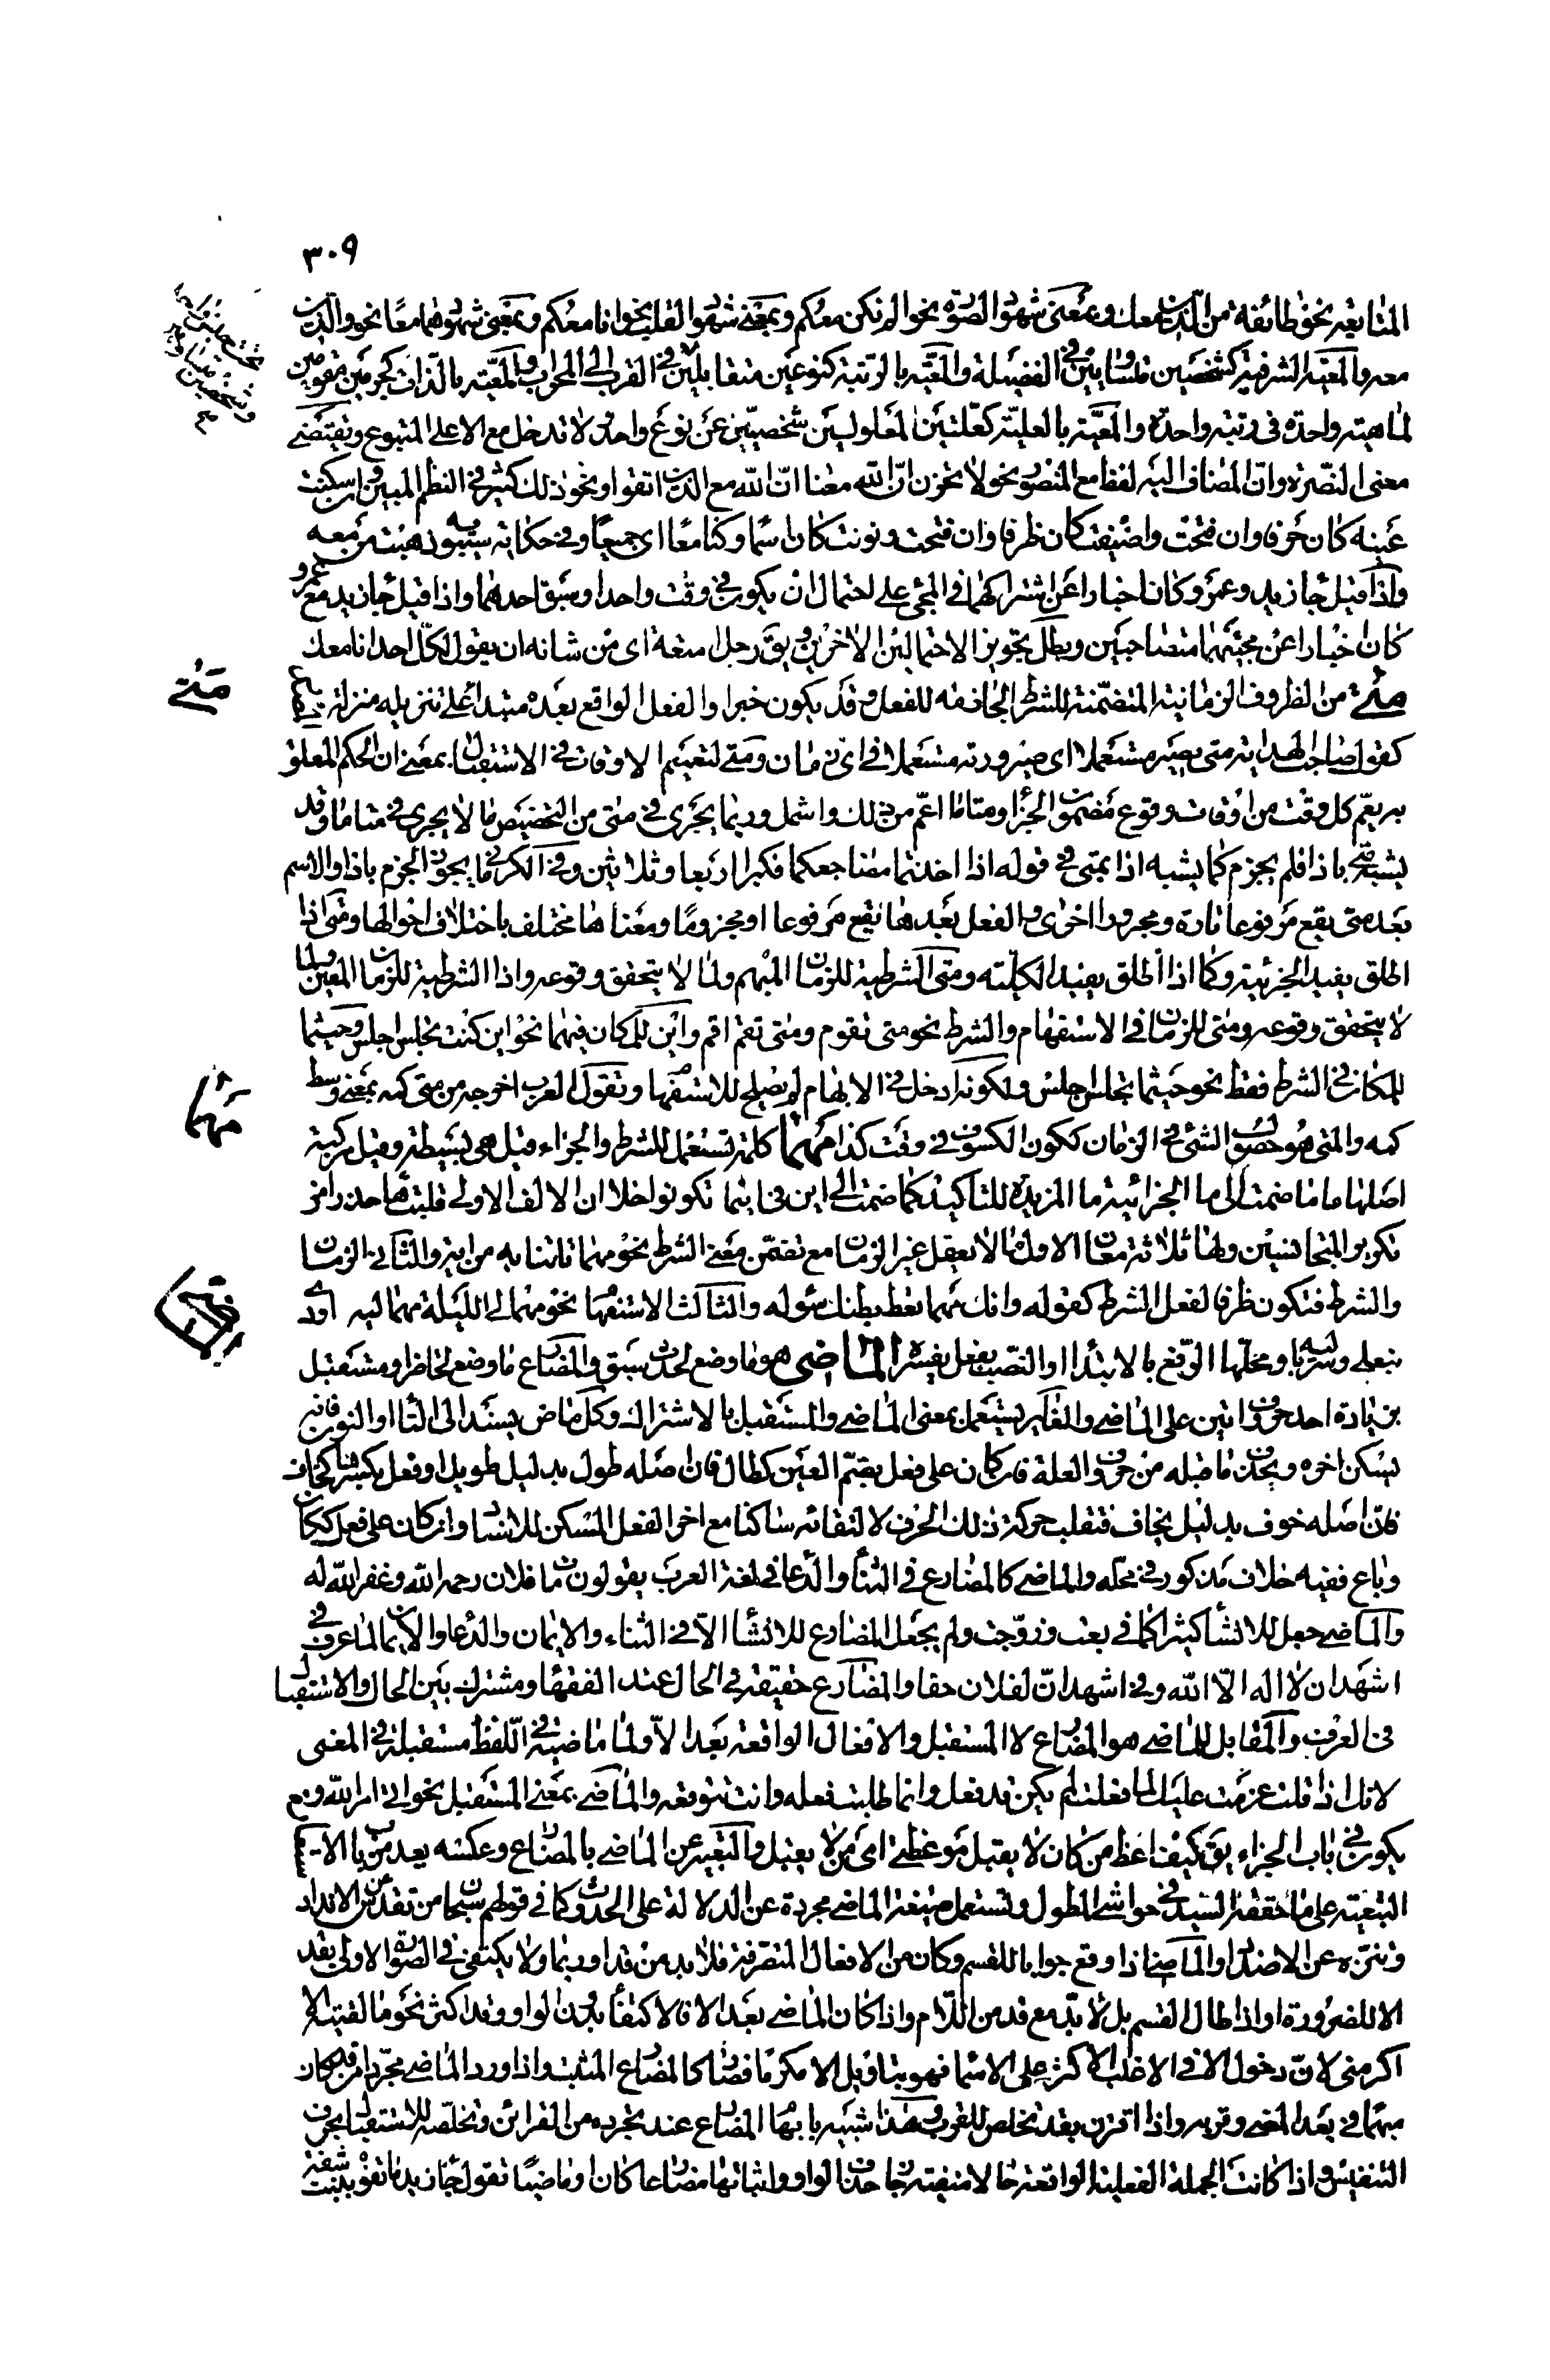 ٣٠٩
المتابعة نحو طائفة من الذين معك وبمعنى شهود الصورة نحو الم نكن معكم وبمعنى شهود القلب نحو انا معكم وبمعنى شهودهما معا نحو والذين
معه والمعية الشرفية كشخصين متساويين في الفضيلة والمعية بالرتبة كنوعين متقابلين في القرب الى المحراب والمعية بالذات كجرمين مقومين
لماهية واحدة في رتبة واحدة والمعية بالعلية كعلتين لمعلولين شخصيين عن نوع واحد ولا تدخل مع الا على المتبوع وتقتضي
معنى النصرة وان المضاف اليه لفظ مع المنصور نحو لا تحزن ان الله معنا ان الله مع الذين اتقوا ونحو ذلك كثير في النظم المبين وان سكنت
عينه كان حرفا وان فتحت واضيفت كان ظرفا وان فتحت ونونت كان اسما وكنا معا اي جميعا وفي حكاية سيبويه ذهبت من معه
واذا قيل جا زيد وعمرو كان اخبارا عن اشتراكهما في المجئ على احتمال ان يكون في وقت واحد او سبق احدهما واذا قيل جا زيد مع عمرو
كان اخبارا عن مجيئهما متصاحبين وبطل تجويز الاحتمالين الاخرين ويق رجل امعة اي من شانه ان يقول لكل احد انا معك
متى
متى من الظروف الزمانية المتضمنة للشرط الجازمة للفعل وقد يكون خبرا والفعل الواقع بعده مبتدا على تنزيله منزلة
كقول صاحب الهداية متى يصير مستعملا اي صيرورته مستعملا في اي زمان ومتى لتعميم الاوقات في الاستقبال بمعنى ان الحكم المعلق
به يعم كل وقت من اوقات وقوع مضمون الجزا ومتاما اعم من ذلك واشمل وربما يجرى في متى من التخصيص ما لا يجرى في متاما وقد
يشبه متى باذا فلم يجزم كما يشبه اذا بمتى في قوله اذا اخذتما مضاجعكما فكبرا اربعا وثلاثين وفي الكرماني يجوز الجزم باذا والاسم
بعد متى يقع مرفوعا تارة ومجرورا اخرى والفعل بعدها يقع مرفوعا او مجزوما ومعناها مختلف باختلاف احوالها ومتى اذا
اطلق يفيد الجزئية وكما اذا اطلق يفيد الكلية ومتى الشرطية للزمان المبهم ولما لا يتحقق وقوعه واذا الشرطية للزمان المعين ولما
لا يتحقق وقوعه ومتى للزمان في الاستفهام والشرط نحو متى تقوم ومتى تقم اقم واين للمكان فيهما نحو اين كنت تجلس اجلس وحيثما
مهما
للمكان في الشرط فقط نحو حيثما تجلس اجلس ولكونه ادخل في الابهام لم يصلح للاستفهام وتقول العرب اخرجه من متى كمه بمعنى وسط
كمه والمتى هو حصول الشئ في الزمان ككون الكسوف في وقت كذا مهما كلمة تستعمل للشرط والجزاء قيل هي بسيطة وقيل مركبة
اصلها ما ما ضمت الى ما الجزائية ما المزيدة للتاكيد كما ضمت الى اين في اينما تكونوا خلا ان الالف الاولى قلبت ها حذرا من
تكرير المتجانسين ولها ثلاثة معان الاول ما لا يعقل غير الزمان مع تضمن معنى الشرط نحو مهما تاتنا به من اية والثاني الزمان
والشرط فتكون ظرفا لفعل الشرط كقوله وانك مهما تعط بطنك سؤله والثالث الاستفهام نحو مهما لي الليلة مهما ليه اودى
بنعلى وسرباليه ومحلها الرفع بالابتدا او النصب بفعل يفسره الماضى هو ما وضع لحدث سبق والمضارع ما وضع لحاضر او مستقبل
بزيادة احد حروف اتين على الماضي والغابر يستعمل بمعنى الماضي والمستقبل بالاشتراك وكل ماض يسند الى التا او النون فانه
يسكن اخره ويحذف ما قبله من حروف العلة فان كان على فعل بضم العين كطال فان اصله طول بدليل طويل او فعل بكسرها كخاف
فان اصله خوف بدليل يخاف فتقلب حركة ذلك الحرف لالتقائه ساكنا مع اخر الفعل المسكن للاسناد وان كان على فعل ككان
وباع ففيه خلاف مذكور في محله والماضي كالمضارع في الثنا والدعا في لغة العرب يقولون مات فلان رحمه الله وغفر الله له
والماضي جعل للانشا كثيرا كما في بعت وزوجت ولم يجعل المضارع للانشا الا في الثناء والايمان والدعا والايمان لما عرف في
اشهد ان لا اله الا الله وفي اشهد ان لفلان حقا والمضارع حقيقة في الحال عند الفقها ومشترك بين الحال والاستقبال
في العرف والمقابل للماضي هو المضارع لا المستقبل والافعال الواقعة بعد الا ولما ماضية في اللفظ مستقبلة في المعنى
لانك اذا قلت عزمت عليك لما فعلت لم يكن قد فعل وانما طلبت فعله وانت تتوقعه والماضي بمعنى المستقبل نحو اتى امر الله وبع
يكون في باب الجزاء يق كيف اعظ من كان لا يقبل موعظتي اي من لا يقبل والتعبير عن الماضي بالمضارع وعكسه يعد من باب الاستعارة
التبعية على ما حققه السيد في حواشي المطول وتستعمل صيغة الماضي مجردة عن الدلالة على الحدوث كما في قولهم سبحان من تقدس عن الانداد
وتنزه عن الاضداد والماضي اذا وقع جوابا للقسم وكان من الافعال المتصرفة فلا بد من قد او ربما ولا يكتفى في الصورة الاولى بقد
الا للضرورة او اذا طال القسم بل لا بد مع قد من اللام واذا كان الماضي بعد الا فالاكتفأ بدون الواو وقد اكثر نحو ما لقيته الا
اكرمني لان دخول الا في الاغلب الاكثر على الاسما فهو بتاويل الا مكرما فصار كالمضارع المثبت واذا ورد الماضي مجردا من قد كان
مبهما في بعد المضي وقربه واذا اقترن بقد تخلص للقرب وهذا شبيه بابهام المضارع عند تجرده من القرائن وتخلصه للاستقبال بحرف
التنفيس واذا كانت الجملة الفعلية الواقعة حالا منفية جاز حذف الواو واثباتها مضارعا كان او ماضيا تقول جا زيد ما تفوه ببنت شفة